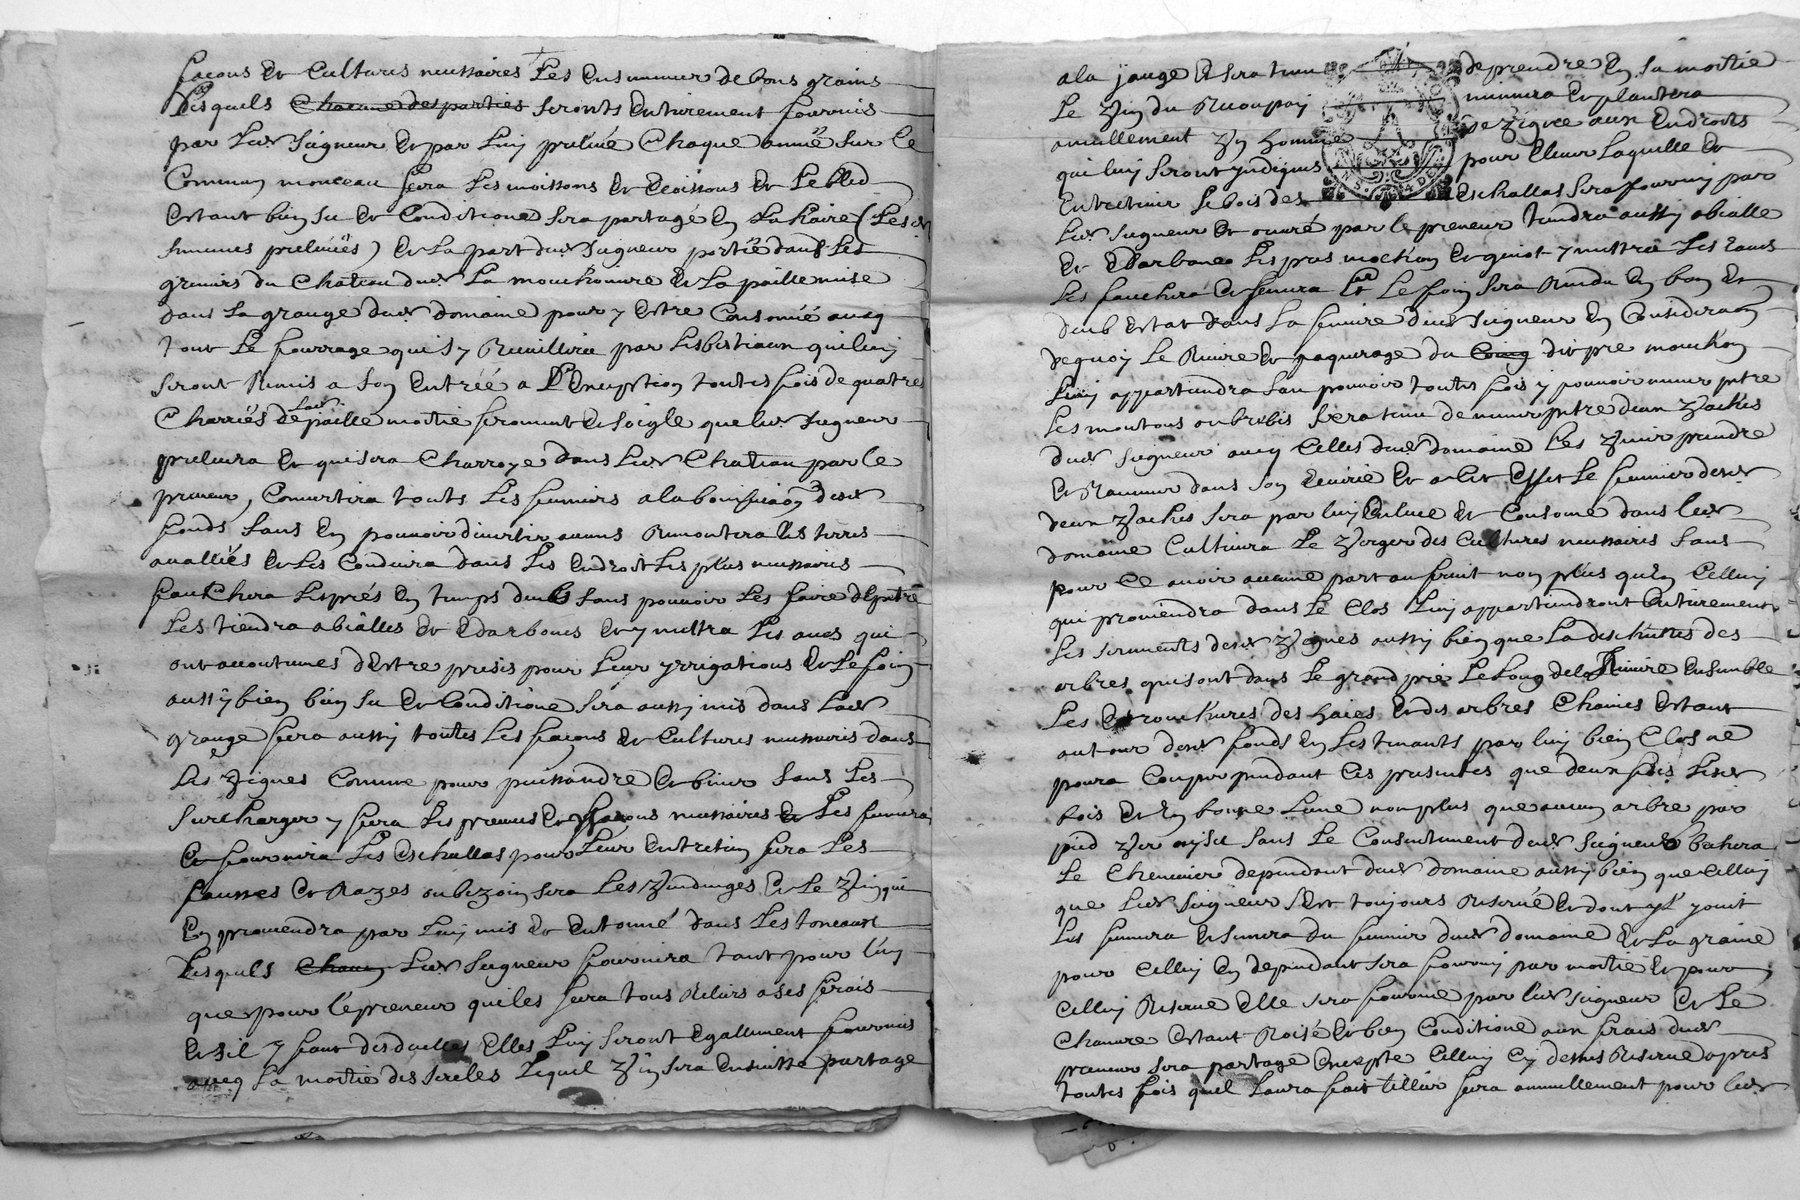 facons et Cultures necessaires Les ensemencer de bons grains
Lesquels Chacune des parties seronts entierement fournis
par Ledt Seigneur et par Luy preleué Chaque année sur le
Commun monceau fera Les moissons et Et Le bled
estant bien sec et Conditione sera partagé en La haire (Lesdt
semences preleueés) et La part dudt Seigneur portée dans Les
greniers du Chateau dudt La et La paille mise
dans La grange dudt domaine pour y estre Consomé aueq
tout Le fourrage qui s'y Recuillira par Les bestiaux qui luy
seront Remis a son entréé a L'Exception toutes fois de quatres
Charrés de paille moitie froment et soigle que ledt Seigneur
preleuera et qui sera Charroyé dans Ledt Chateau par le
preneur, Conuertira touts Les fumiers a la bonification desdt
fonds sans en pouuoir diuertir aucuns Remontera les terres
auallées et Les Conduira dans Les endroit Les plus necessaires
fauchera Les prés en temps deub sans pouuoir Les faire depaitre
Les tiendra abiàlles et Darbones et y mettra Les eaues qui
ont accoutumes d'Estre prises pour Leur yrrigations et Le foin
aussy bien bien sec et Conditioné sera aussi mis dans Ladt
grange fera aussy toutes Les facons et Cultures necessaires dans
Les Vignes Comme pour et biner sans Les
surcharger y fera Les preuues et facons necessaires et Les fumera
et fournira Les Eschallas pour Leur entretien fera Les
fausses et Razes ou bezoin sera Les Vendenges et Le Vin qui
En prouiendra par Luy mis et entonné dans Les toneaux
Lesquels Chacun Ledt Seigneur fournira tant pour luy
que pour le preneur qui les fera tous Reliers a ses frais
et sil y faut des duelles elles Luy seront egallement fournies
aueq La moitie des sercles Lequel Vin sera ensuitte partage
a la jauge et sera tenu de prendre En sa moitie
Le Vin du menera et plantera
anuellement Un homme de Vigne aux endroits
qui luy seront yndiqués pour Eleuer Laquelle et
Entretenir Le bois des Eschallas sera fourny par
Ledt Seigneur et ouuré par le preneur tiendra aussy abialle
et Darbones Les pres mochon et y mettra Les eaues
Les fauchera et fenera et Le foin sera Rendu en bon et
deub Estat dans La feniere dudt Seigneur En Consideraon
de quoy Le Reuiure et paquerage du Coing dit pré mouchon
Luy appartiendra sans pouuoir toutes fois y pouuoir mener paitre
Les moutons ou brebis sera tenu de mener paitre deux Vaches
dudt Seigneur aueq Celles dudt domaine Les Venir prendre
et Ramener dans son et a cet Effet Le fumier desdt
deux Vaches sera par luy Enleué et Consomé dans ledt
domaine Cultiuera Le Verger des Cultures necessaires sans
pour Ce auoir aucune part au fruit non plus qu'En Celluy
qui prouiendra dans Le Clos Luy appartiendront entierement
Les serments desdt Vignes aussy bien que La des
arbres qui sont dans Le grand pré Le Long de la Riuiere ensemble
Les des haies et des arbres Chaines Estant
autour desdt fonds En Les tenants par luy bien Clos ne
poura Couper pendant Ces presentes que deux fois Lesdt
bois et En bonne Lune non plus que aucun arbre par
pied Ver sans Le Consentement dudt Seigneur bechera
Le Cheneuier dependant dudt domaine aussy bien que Celluy
que Ledt Seigneur s'est toujours Reserué et dont yl jouit
Les fumera et semera du fumier dudt domaine et La graine
pour Celluy En dependant sera fourny par moitié et pour
Celluy Reserué Elle sera fournie par ledt Seigneur et Le
Chanure Estant et bien Conditioné aux frais dudt
preneur sera partagé Excepté Celluy Cy dessus Reserué apres
toutes fois quil Laura fait tillier fera annuellement pour ledt